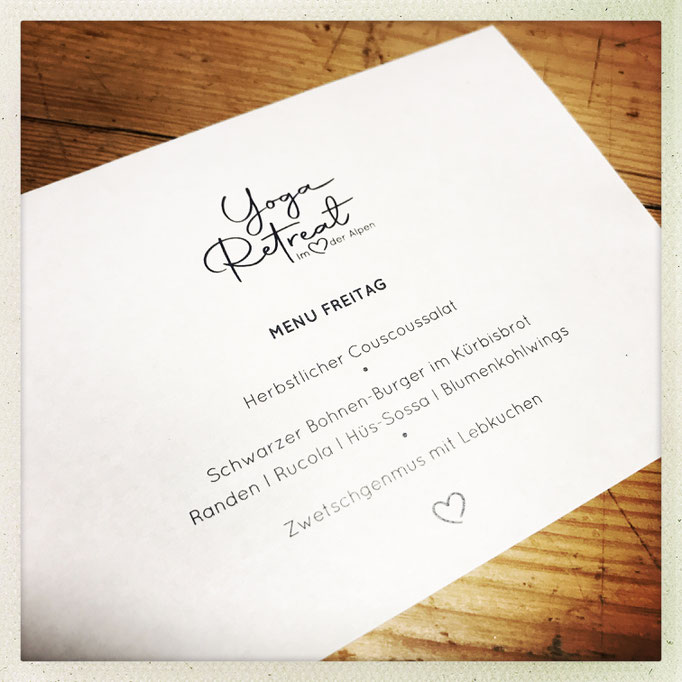 Yoga
Retreat
Im ♡ der Alpen
MENU FREITAG
Herbstlicher Couscoussalat
•
Schwarzer Bohnen-Burger im Kürbisbrot
Randen | Rucola | Hüs-Sossa | Blumenkohlwings
•
Zwetschgenmus mit Lebkuchen
♡